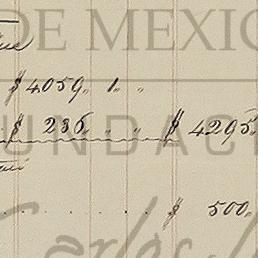 DE MEXIC
$ 4059,, 1,, ,,
$ 236,, ,, ,, $ 4295,,
UNDAC
. . . . . . . $ 500,,
Carlos